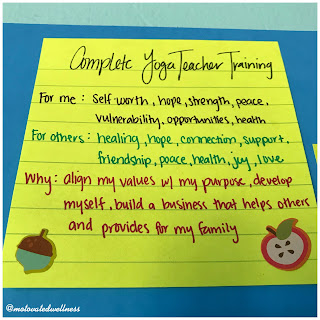 Complete Yoga Teacher Training
For me: Self worth, hope, strength, peace,
vulnerability, opportunities, health
For others: healing, hope, connection, support,
friendship, peace, health, joy, love
Why: align my values w/ my purpose, develop
myself, build a business that helps others
and provides for my family
@motovatedwellness